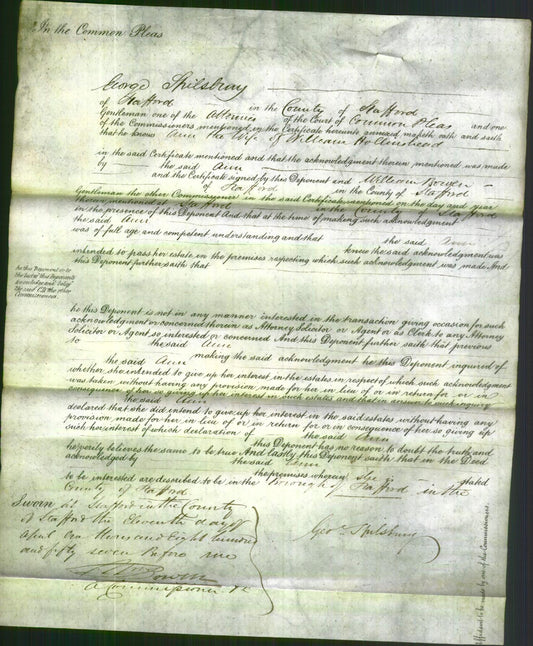 In the Common Pleas
George Spilsbury
of Stafford in the County of Stafford
Gentleman one of the Attornies of the Court of Common Pleas and one
of the Commissioners mentioned in the Certificate hereunto annexed maketh oath and saith
that he knows Ann the Wife of William
in the said Certificate mentioned and that the acknowledgment therein mentioned was made
by the said Ann
and the Certificate signed by this Deponent and William Bowen
of Stafford in the County of Stafford
Gentleman the other Commissioner in the said Certificate mentioned on the day and year
therein mentioned at County of Stafford
in the presence of this Deponent And that at the time of making such acknowledgment
the said Ann
was of full age and competent understanding and that the said Ann
knew the said acknowledgment was
intended to pass her estate in the premises respecting which such acknowledgment was made And
this Deponent further saith that
he this Deponent is not in any manner interested in the transaction giving occasion for such
acknowledgment or concerned therein as Attorney Solicitor or Agent or as Clerk to any Attorney
Solicitor or Agent so interested or concerned And this Deponent further saith that previous
to the said Ann
the said Ann making the said acknowledgment he this Deponent inquired of
whether she intended to give up her interest in the estates in respect of which such acknowledgment
was taken without having any provision made for her in lieu of or in return for or in
consequence of her so giving up her interest in such estates and that in answer to such inquiry
the said Ann
declared that she did intend to give up her interest in the said estates without having any
provision made for her in lieu of or in return for or in consequence of her so giving up
such her interest of which declaration of the said Ann
this Deponent has no reason to doubt the truth and
he verily believes the same to be true And lastly this Deponent saith that in the Deed
acknowledged by the said Ann
the premises wherein She is stated
to be interested are described to be in the Borough of Stafford in the
County of Stafford
Sworn at Stafford in the County
of Stafford the Eleventh day of
April One thousand Eight hundred
and fifty seven Before me
A Commissioner &c
Geoe. Spilsbury
Affidavit to be made by one of the Commissioners.